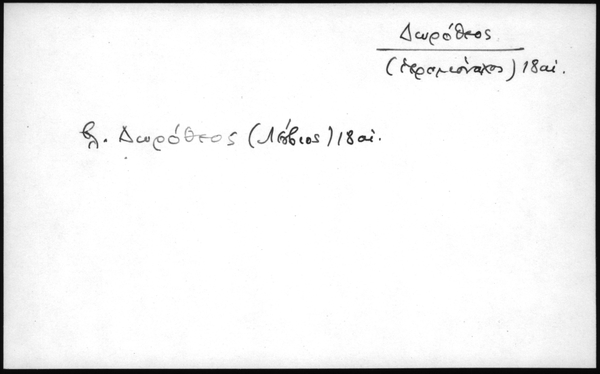 Δωρόθεος
(ἱερομόναχος) 18 αἰ.
βλ. Δωρόθεος (Λέσβιος) 18 αἰ.